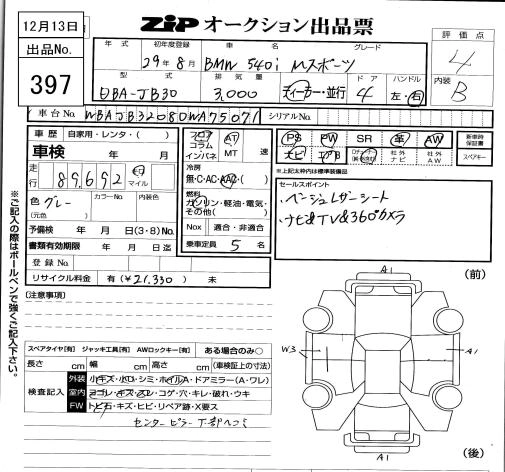 12月13日
ZIP オークション出品票
出品No.
397
年式 初年度登録 車名 グレード
29年8月 BMW 540i Mスポーツ
評価点
4
型式 排気量 ドア ハンドル
DBA-JB30 3,000 ディーラー・並行 4 左・右
内装
B
車台No. WBAJB32080WA75071 シリアルNo.
車歴 自家用・レンタ( )
車検 年 月
走行 89,692 キロ マイル
色 グレー カラーNo. 内装色
(元色)
予備検 年 月 日(3・8)No.
書類有効期限 年 月 日迄
登録No.
リサイクル料金 有(¥21,330) 未
フロア コラム インパネ AT MT 速
冷房
C・AC・AAC・( )
燃料
ガソリン・軽油・電気・その他( )
Nox 適合・非適合
乗車定員 5 名
PS PW SR 革 AW
ナビ エアB 社外ナビ 社外AW
新車時保証書
スペアキー
※上記太枠内は標準装備品
セールスポイント
・ベージュレザーシート
・ナビ&TV&360°カメラ
※ご記入の際はボールペンで強くご記入下さい。
(注意事項)
スペアタイヤ[有] ジャッキ工具[有] AWロックキー[有] ある場合のみ○
長さ cm 幅 cm 高さ cm (車検証上の寸法)
検査記入
外装 小キズ・小凹・シミ・ホイルA・ドアミラー(A・ワレ)
室内 ヨゴレ・キズ・スレ・コゲ・穴・キレ・破れ・ウキ
FW トビ石・キズ・ヒビ・リペア跡・X要ス
センターピラー下部ヘコミ
A1
(前)
W3
A1
A1
(後)